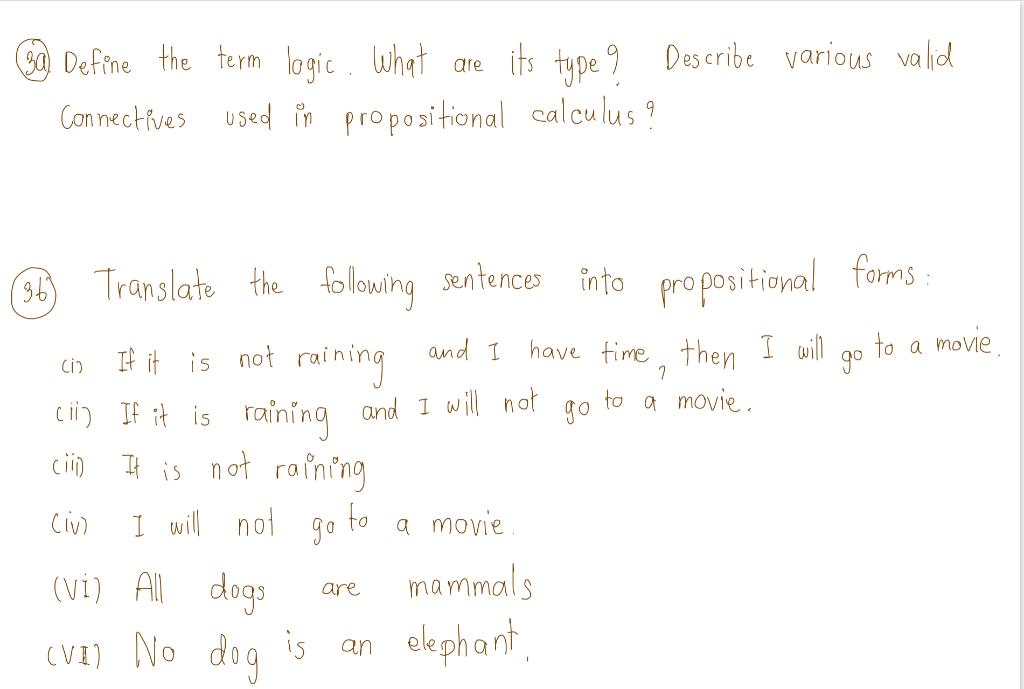 3a Define the term logic. What are its type? Describe various valid
Connectives used in propositional calculus?
3b Translate the following sentences into propositional forms:
(i) If it is not raining and I have time, then I will go to a movie.
(ii) If it is raining and I will not go to a movie.
(iii) It is not raining
(iv) I will not go to a movie.
(Vi) All dogs are mammals
(VII) No dog is an elephant.